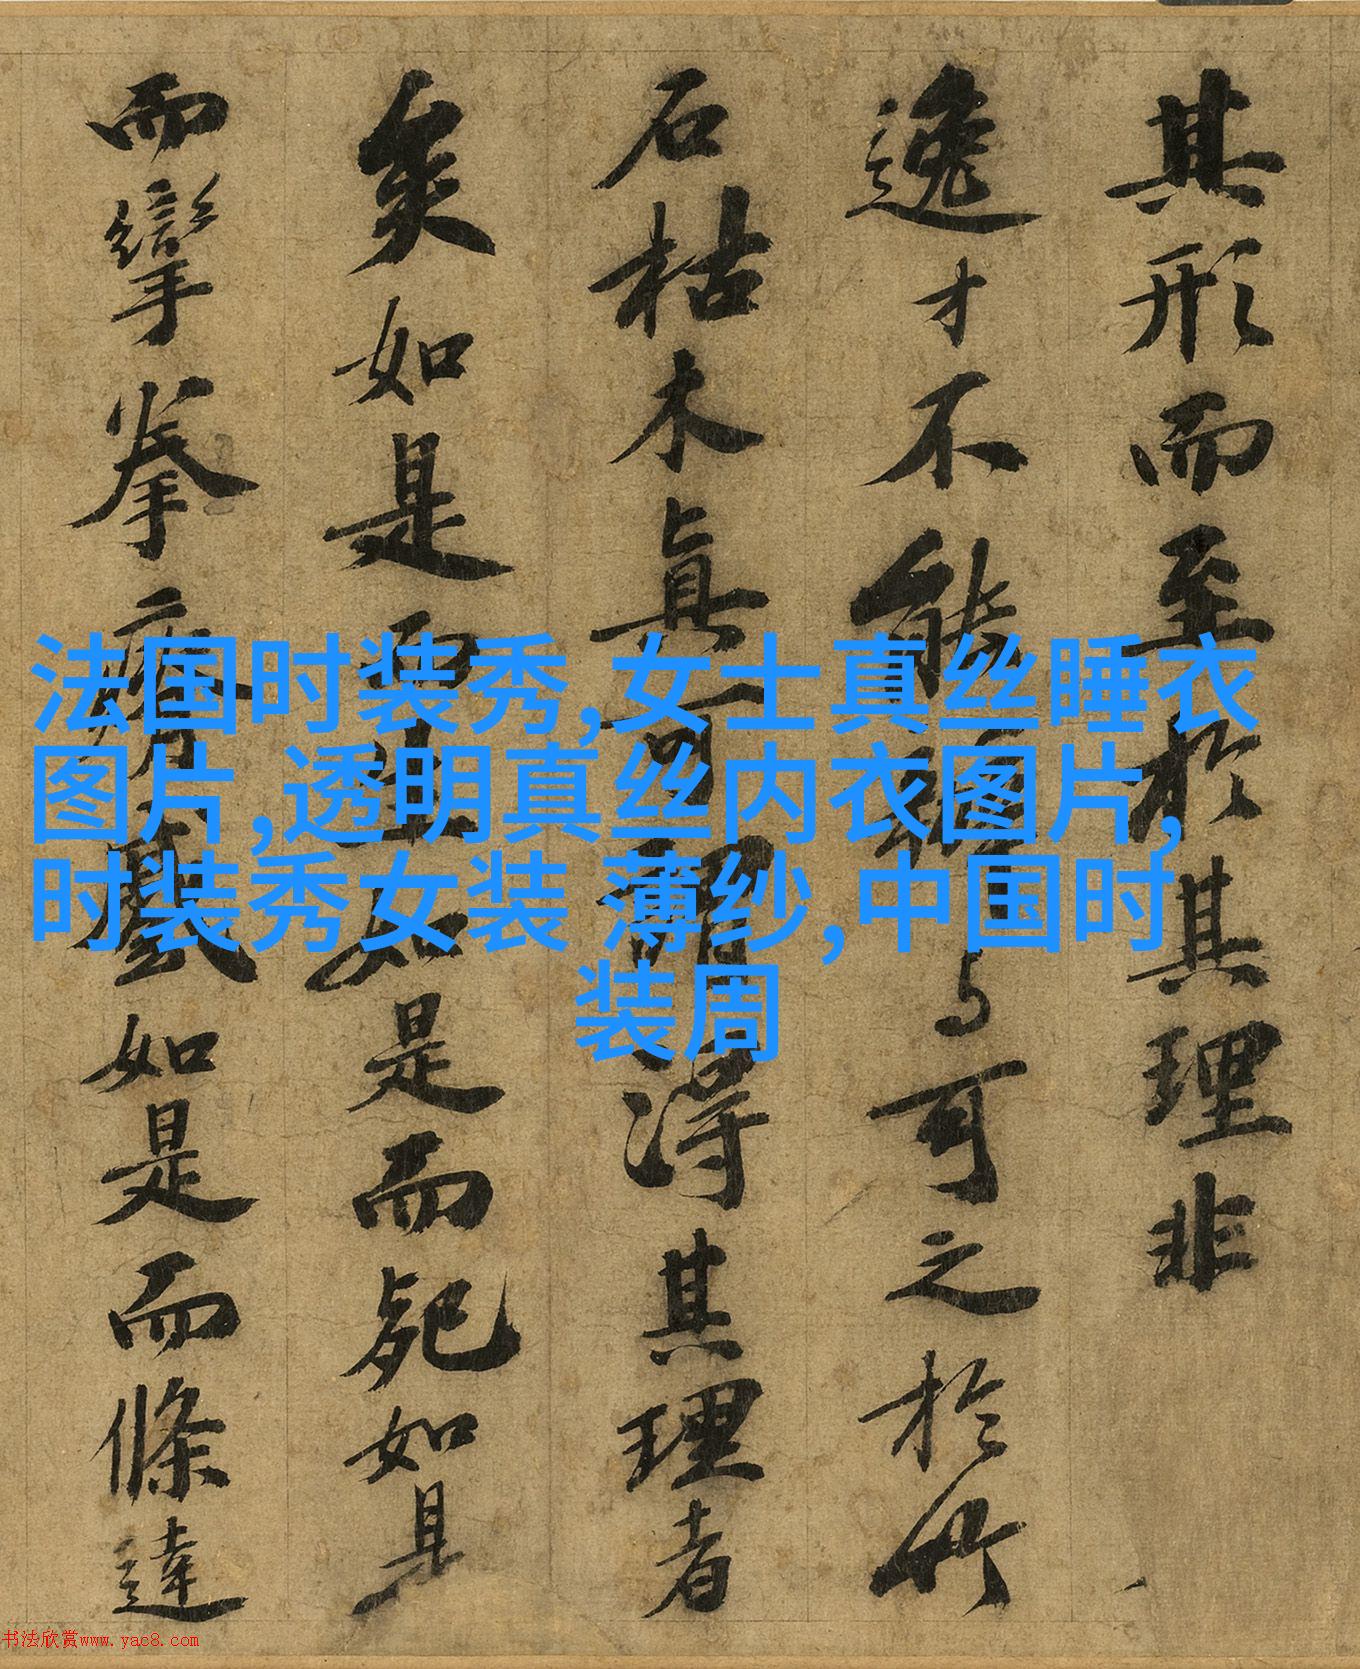 其形而至於其理非
逸才不能辨与可之於竹
石枯木真可謂得其理者
矣如是而生如是而死如是
而攣拳瘠蹙如是而條達
法国时装秀,女士真丝睡衣
图片,透明真丝内衣图片,
时装秀女装 薄纱,中国时
装周
书法欣赏www.yac8.com